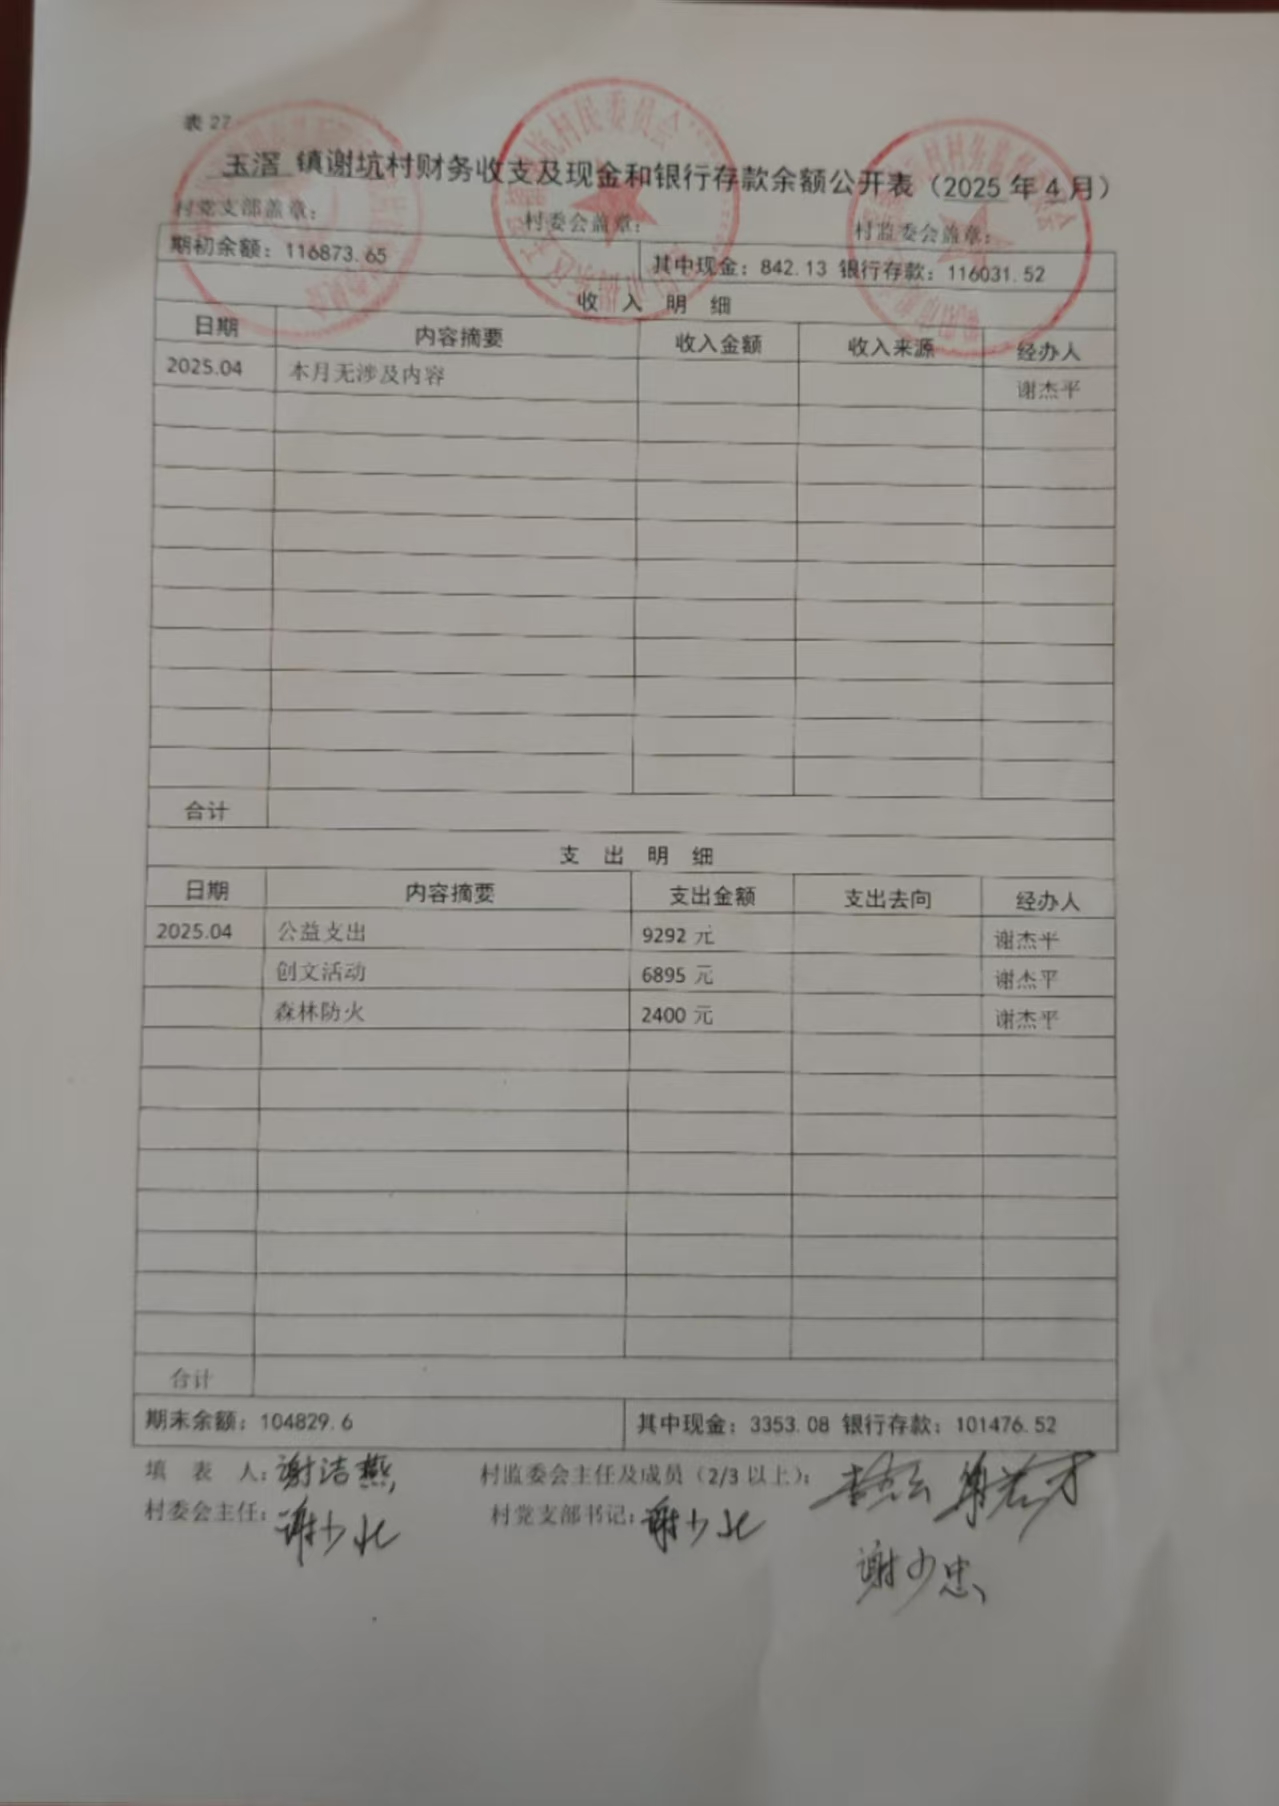 表 22
玉滘 镇谢坑村财务收支及现金和银行存款余额公开表（2025 年 4 月）
村党支部盖章： 村委会盖章： 村监委会盖章：
期初余额：116873.65 其中现金：842.13 银行存款：116031.52
收 入 明 细
日期 内容摘要 收入金额 收入来源 经办人
2025.04 本月无涉及内容 谢杰平
合计
支 出 明 细
日期 内容摘要 支出金额 支出去向 经办人
2025.04 公益支出 9292 元 谢杰平
创文活动 6895 元 谢杰平
森林防火 2400 元 谢杰平
合计
期末余额：104829.6 其中现金：3353.08 银行存款：101476.52
填 表 人：谢洁燕 村监委会主任及成员（2/3 以上）：
村委会主任：谢少 村党支部书记：谢少
谢少忠